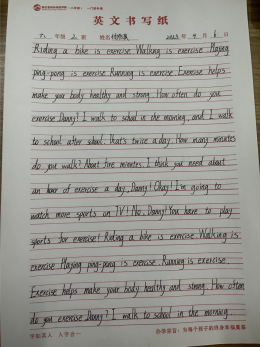 英文书写纸
六 年级 2 班 姓名 2023 年 9 月 6 日
Riding a bike is exercise Walking is exercise Playing
ping-pong is exercise Running is exercise Exercise helps
make your body healthy and strong How often do you
exercise Danny? I walk to school in the morning, and I walk
to school after school. That's twice a day. How many minutes
do you walk? About five minutes. I think you need about
an hour of exercise a day, Danny! Okay! I'm going to
watch more sports on TV! No, Danny! You have to play
sports for exercise! Riding a bike is exercise Walking is
exercise Playing ping-pong is exercise Running is exercise
Exercise helps make your body healthy and strong. How often
do you exercise Danny? I walk to school in the morning
字如其人 人字合一
办学宗旨：为每个孩子的终身幸福奠基